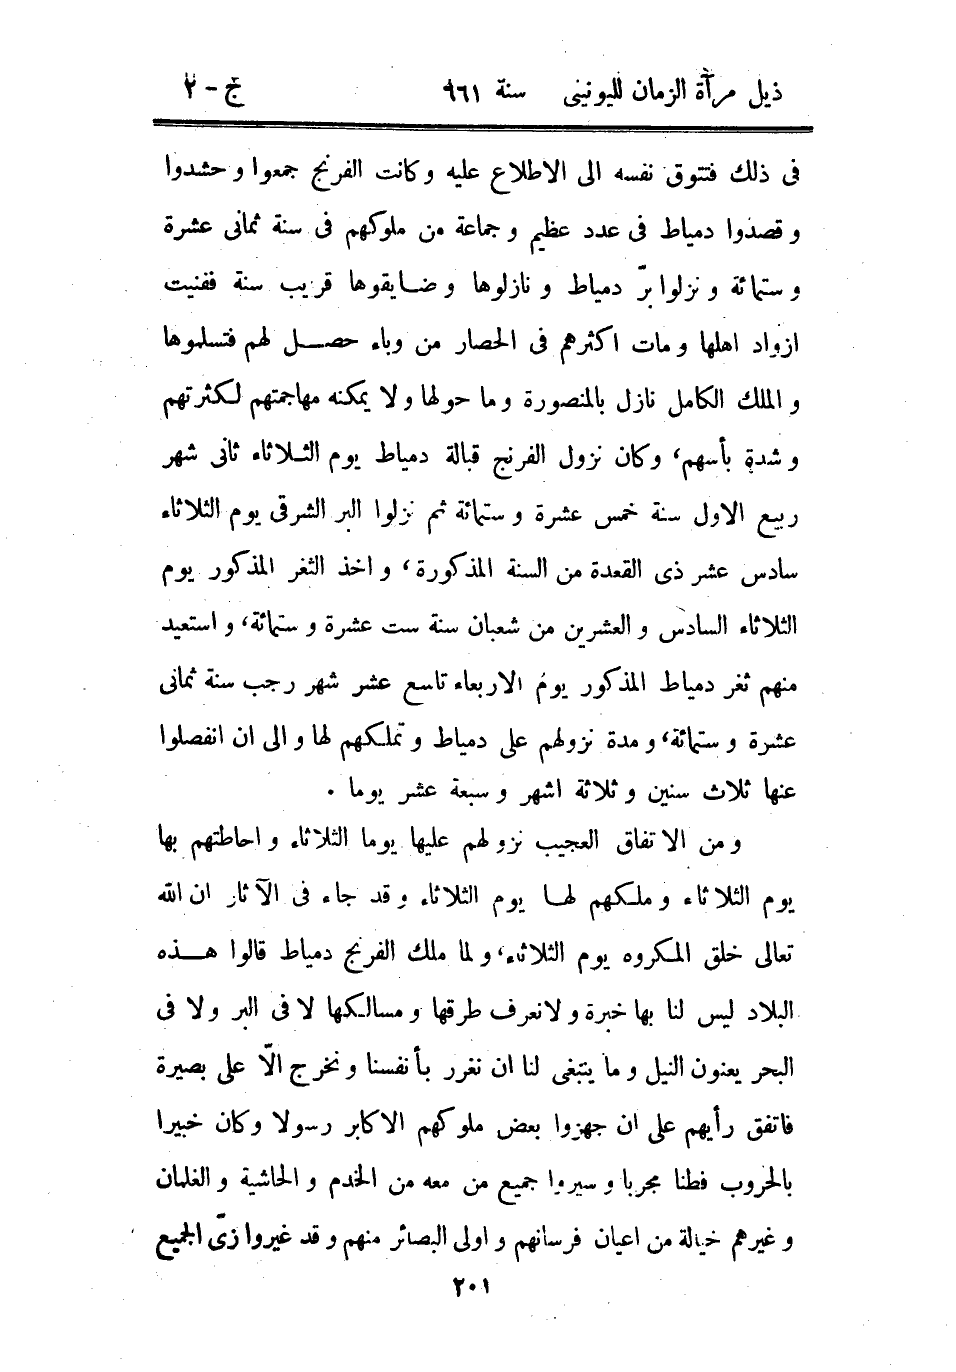 ذيل مرآة الزمان لليونينى سنة ٩٦١ ج - ٢
فى ذلك فتتوق نفسه الى الاطلاع عليه وكانت الفرنج جمعوا و حشدوا
و قصدوا دمياط فى عدد عظيم و جماعة من ملوكهم فى سنة ثمانى عشرة
و ستمائة و نزلوا برّ دمياط و نازلوها و ضايقوها قريب سنة ففنيت
ازواد اهلها و مات اكثرهم فى الحصار من وباء حصل لهم فتسلموها
و الملك الكامل نازل بالمنصورة و ما حولها و لا يمكنه مهاجمتهم لكثرتهم
و شدة بأسهم، وكان نزول الفرنج قبالة دمياط يوم الثلاثاء ثانى شهر
ربيع الاول سنة خمس عشرة و ستمائة ثم نزلوا البر الشرقى يوم الثلاثاء
سادس عشر ذى القعدة من السنة المذكورة، و اخذ الثغر المذكور يوم
الثلاثاء السادس و العشرين من شعبان سنة ست عشرة و ستمائة، و استعيد
منهم ثغر دمياط المذكور يوم الاربعاء تاسع عشر شهر رجب سنة ثمانى
عشرة و ستمائة، و مدة نزولهم على دمياط و تملكهم لها و الى ان انفصلوا
عنها ثلاث سنين و ثلاثة اشهر و سبعة عشر يوما .
و من الاتفاق العجيب نزولهم عليها يوما الثلاثاء و احاطتهم بها
يوم الثلاثاء و ملكهم لها يوم الثلاثاء و قد جاء فى الآثار ان الله
تعالى خلق المكروه يوم الثلاثاء، و لما ملك الفرنج دمياط قالوا هذه
البلاد ليس لنا بها خبرة و لانعرف طرقها و مسالكها لا فى البر و لا فى
البحر يعنون النيل و ما ينبغى لنا ان نغرر بأنفسنا و نخرج الّا على بصيرة
فاتفق رأيهم على ان جهزوا بعض ملوكهم الاكابر رسولا وكان خبيرا
بالحروب فطنا مجربا و سيروا جميع من معه من الخدم و الحاشية و الغلمان
و غيرهم خيالة من اعيان فرسانهم و اولى البصائر منهم و قد غيروا زىّ الجميع
٢٠١